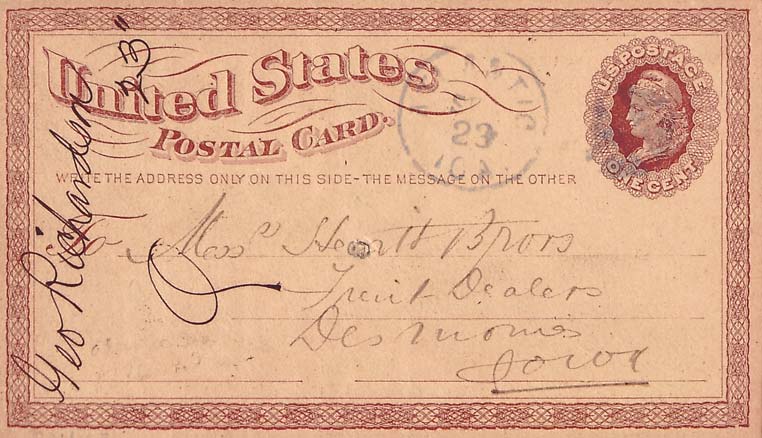 United States
POSTAL CARD.
WRITE THE ADDRESS ONLY ON THIS SIDE-THE MESSAGE ON THE OTHER
U.S. POSTAGE
ONE CENT
23
To Mess
Bros
Dealers
Des Moines
Iowa
Geo Richardson